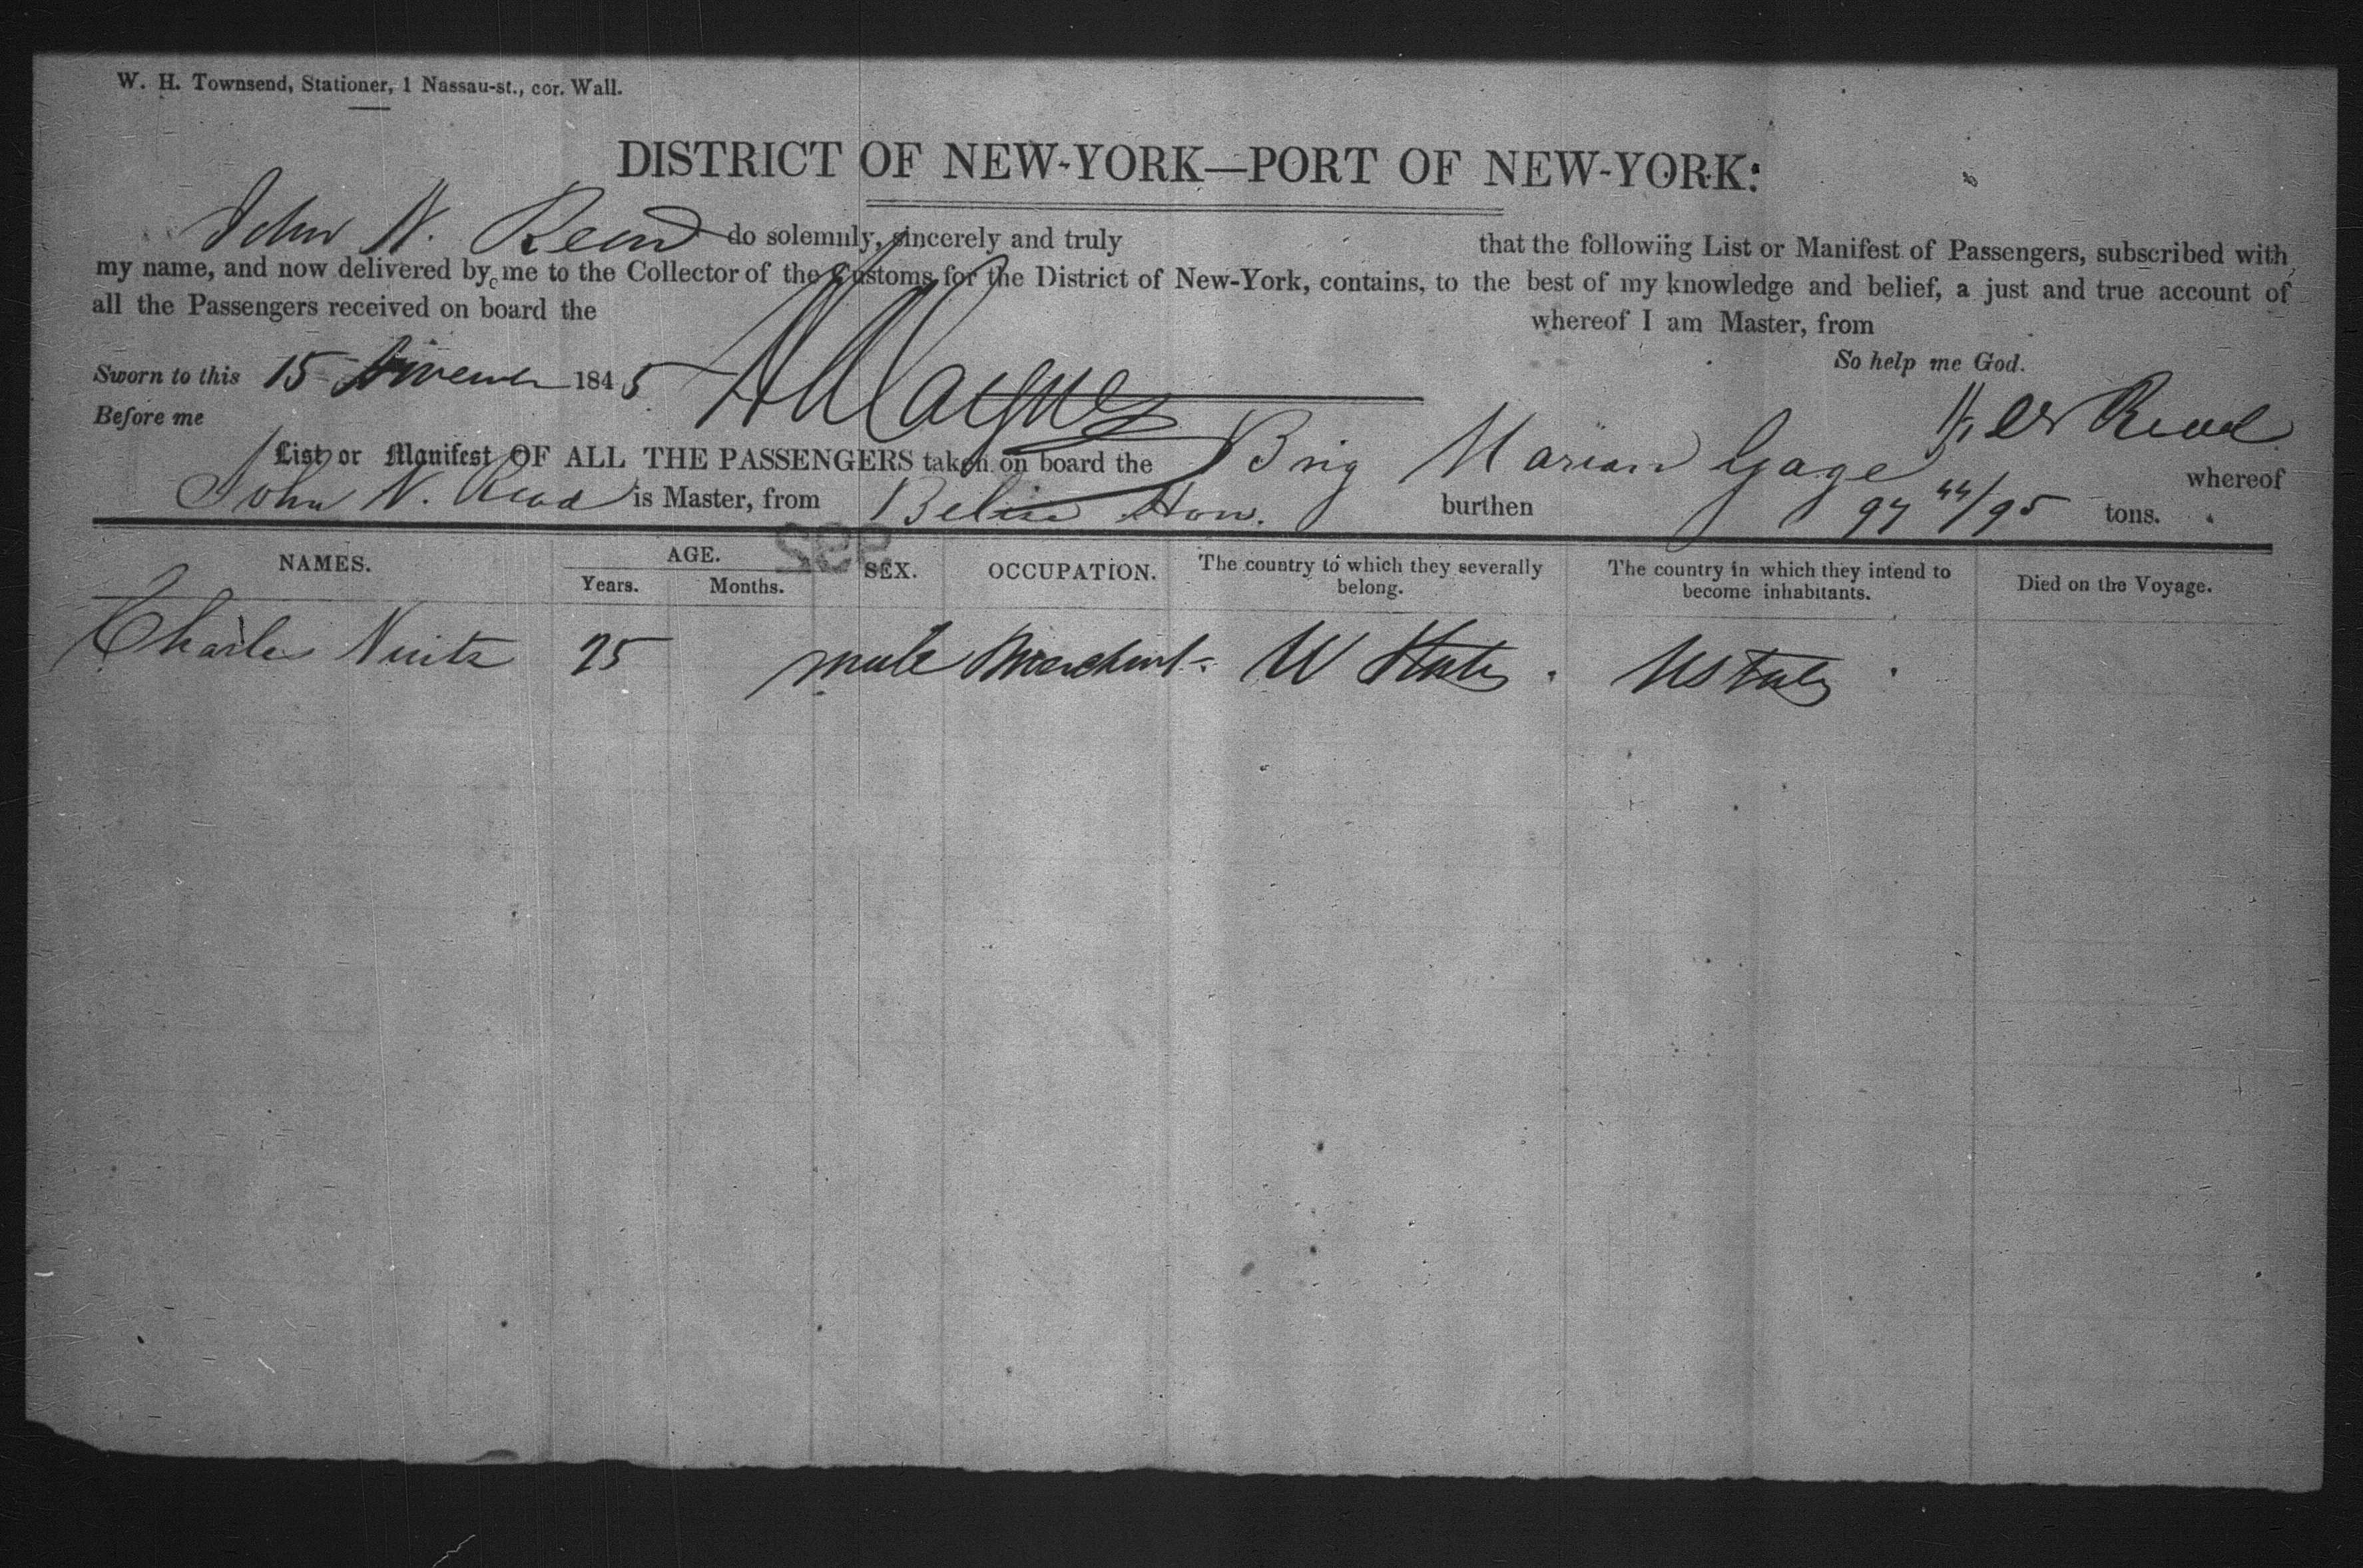 W. H. Townsend, Stationer, 1 Nassau-st., cor. Wall.
DISTRICT OF NEW-YORK—PORT OF NEW-YORK:
John N. Read do solemnly, sincerely and truly that the following List or Manifest of Passengers, subscribed with
my name, and now delivered by me to the Collector of the Customs for the District of New-York, contains, to the best of my knowledge and belief, a just and true account of
all the Passengers received on board the whereof I am Master, from
So help me God.
Sworn to this 15 November 1845
Before me
Read
List or Manifest OF ALL THE PASSENGERS taken on board the Brig Marian Gage whereof
John N. Read is Master, from Belize Hon. burthen 97 44/95 tons.
NAMES. AGE. SEX. OCCUPATION. The country to which they severally belong. The country in which they intend to become inhabitants. Died on the Voyage.
Years. Months.
Charles 25 male Merchant U States. U States